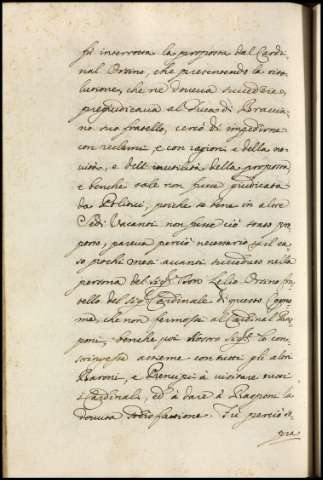 fù interrotta la proposta dal Cardi-
nal Orsino, che prevedendo la riso-
luzione, che ne doveva succedere,
pregiudicava al Duca di Braccia-
no suo fratello, cercò di impedirne
con reclami e con ragioni e della no-
vità, e dell' inutilità della proposta,
e benche tale non fusse giudicata
da Politici, perche se bene in altre
Sedi Vacanti non fusse ciò stato pro-
posto, pareva perciò necessario il ca-
so pochi mesi avanti succeduto nella
persona del Sig.r Don Lelio Orsino fra-
tello del Sig.r Cardinale di questo Cogno-
me, che non fermossi al Cardinal
benche poi Nostro Sig.re lo con-
stringesse assieme con tutti gli altri
Baroni, e Prencipi à visitare tutti
i Cardinali, ed à dare à Raggioni la
dovuta sodisfazione. Fù perciò so-
pra